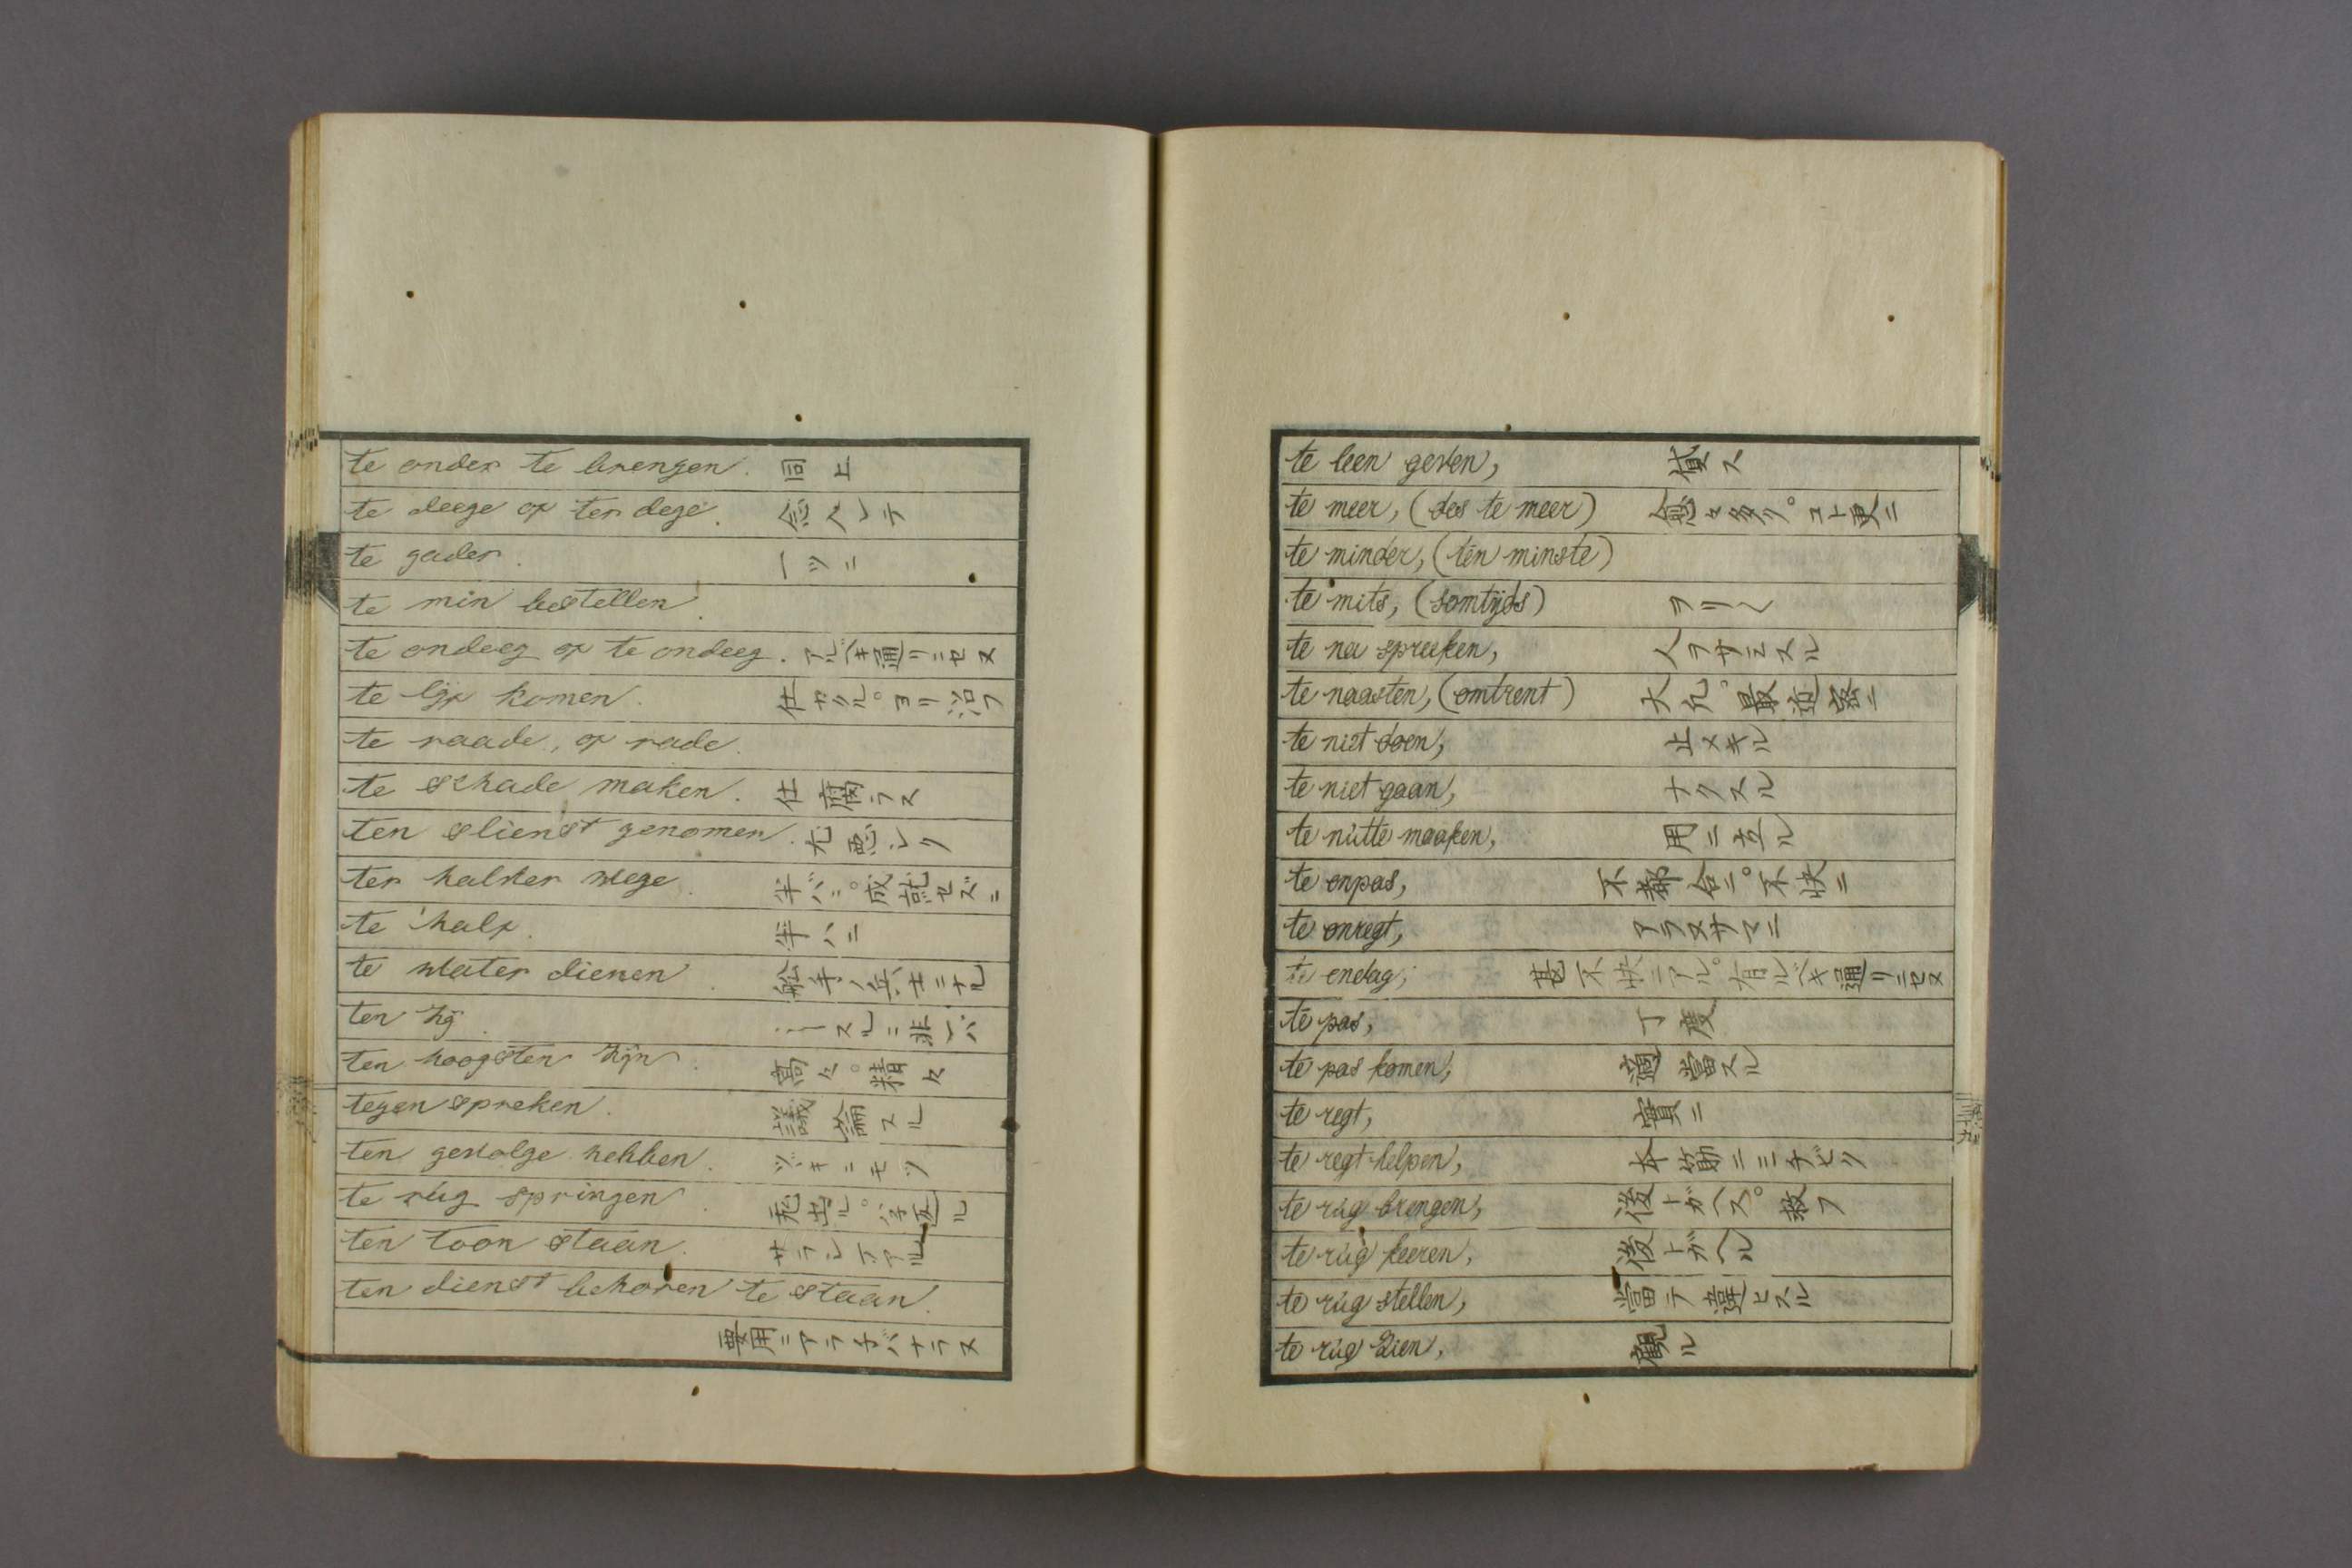 te onder te brengen. 同上
te deege of ter dege. 念ヘレテ
te gader. 一ツニ
te min bestellen.
te ondeeg of te ondeeg. アルベキ通リニセヌ
te lijf komen. 仕カクル。ヨリ沿フ
te raade, of rade.
te schade maken. 仕腐ラス
ten slienst genomen. 尤悪シク
ter halver wege. 半バニ。成就セズニ
te half. 半バニ
te water dienen. 舩手ノ兵士ニナル
ten zij. スルニ非レバ
ten hoogsten zijn. 高々。精々
tegen spreken. 議論スル
ten gevolge hebben. ツヾキニモツ
te rúg springen.
ten toon staan. サラシテアル
ten dienst behoren te staan.
要用ニアラ子バナラヌ
te leen geven, 貸ス
te meer, (des te meer) 愈々多ク。コト更ニ
te minder, (ten minste)
te mits, (somtijds) ヲリ〱
te na spreeken, 人ヲサミスル
te naasten, (omtrent) 大凢。最近密ニ
te niet doen, 止メキル
te niet gaan, ナクスル
te nútte maaken, 用ニ立ル
te onpas, 不都合ニ。不快ニ
te onregt, アラヌサマニ
te ondag, 甚不快ニアル。有ルベキ通リニセヌ
te pas, 丁度
te pas komen, 適當スル
te regt, 實ニ
te regt helpen, 本筋ニミチビク
te rúg brengen, 後トガヘス。救フ
te rúg keeren, 後トガヘル
te rúg stellen, 當テ違ヒスル
te rúg zien, 顧ル